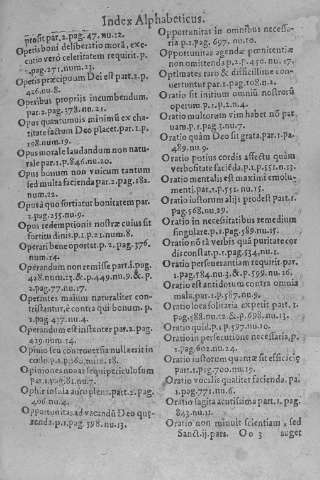 Index Alphabeticus.
prosit par. 2. pag. 47. nu. 12.
Operis boni deliberatio morâ, exe-
cutio verò celeritatem requirit. p.
pag. 271, num. 23.
Operis præcipuum Dei est part. 1. p.
426. nu. 8.
Operibus propriis incumbendum.
par. 2. pag. 378. nu. 21.
Opus quantumuis minimū ex cha-
ritate factum Deo placet. par. 1. p.
198. num. 19.
Opus morale laudandum non natu-
rale par. 1. p. 846. nu. 20.
Opus bonum non vnicum tantum
sed multa facienda par. 2. pag. 182.
num. 12.
Oputâ quo sortiatur bonitatem par.
1. pag. 255. nu. 9.
Opus redemptionis nostræ cuius sit
fortitudinis. p. 1. p. 21. nu. 8.
Operari bene oportet p. 2. pag. 376.
num. 14.
Operandum non remisse part. 1. pag.
428. num. 23. & p. 449. nu. 9. & p.
2. pag. 77. nu. 17.
Operantes malum naturaliter con-
tristantur, è contra qui bonum. p.
2. pag. 437. nu. 4.
Operandum est instanter par. 2. pag.
429. num. 14.
Opinio seu controuersia nulla erit in
cœlis. p. 1. p. 360. num. 18.
Opiniones nouas sequi periculosum
par. 1. pag. 81. nu. 7.
part. 2. pag.
406. nu. 4.
Opportunitas ad vacandū Deo quæ-
renda. p. 1. pag. 598. nu. 13.
Opportunitas in omnibus necessa-
ria p. 1. pag. 697. nu. 10.
Opportunitas agendæ pœnitentiæ
non omittenda p. 1. p. 450. nu. 17.
Optimates raro & difficillime con-
uertuntur par. 1. pag. 108. n. 2.
Oratio sit initium omniū nostrorū
operum. p. 1. p. 2. n. 4.
Oratio multorum vim habet nō par-
uam. p. 1. pag. 3. nu. 7.
Oratio quàm Deo sit grata. par. 1. pa.
489. nu. 9.
Oratio potius cordis affectu quàm
verbositate facieda. p. 1. p. 151. n. 13.
Oratio mentalis est maximi emolu-
menti. par. 1. p. 551. nu. 15.
Oratio iustorum aliis prodest part. 1.
pag. 568. nu. 29.
Oratio in necessitatibus remedium
singulare. p. 1. pag. 589. nu. 15.
Oratio nō tā verbis quâ puritate cor
dis constat. p. 1. pag. 534. nu. 1.
Oratio perseuerantiam requirit par.
1. pag. 584. nu. 3. & p. 599. nu. 16.
Oratio est antidotum contra omnia
mala. par. 1. p. 587. nu. 9.
Oratio loca solitaria expetit part. 1.
pag. 588. nu. 12. & p. 698. nu. 13.
Oratio quid. p. 1. p. 597. nu. 10.
Oratio in persecutione necessaria. p.
1. pag. 602. nu. 24.
Oratio iustorum quantæ sit efficaciæ
part. 1. p. 700. nu. 19.
Oratio vocalis qualiter facienda. pa.
1. pag. 771. nu. 6.
Oratio sagita acutissima part. 1. pag.
843. nu. 11.
Oratio non minuit scientiam, sed
Sanct. ij. pars. Oo 3 auget